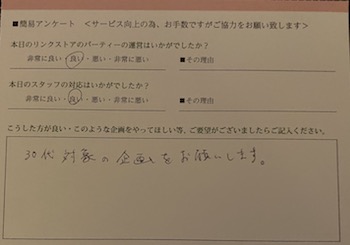 ■簡易アンケート <サービス向上の為、お手数ですがご協力をお願い致します>
本日のリンクストアのパーティーの運営はいかがでしたか?
非常に良い・良い・悪い・非常に悪い ■その理由
本日のスタッフの対応はいかがでしたか?
非常に良い・良い・悪い・非常に悪い ■その理由
こうした方が良い・このような企画をやってほしい等、ご要望がございましたらご記入ください。
30代対象の企画をお願いします。